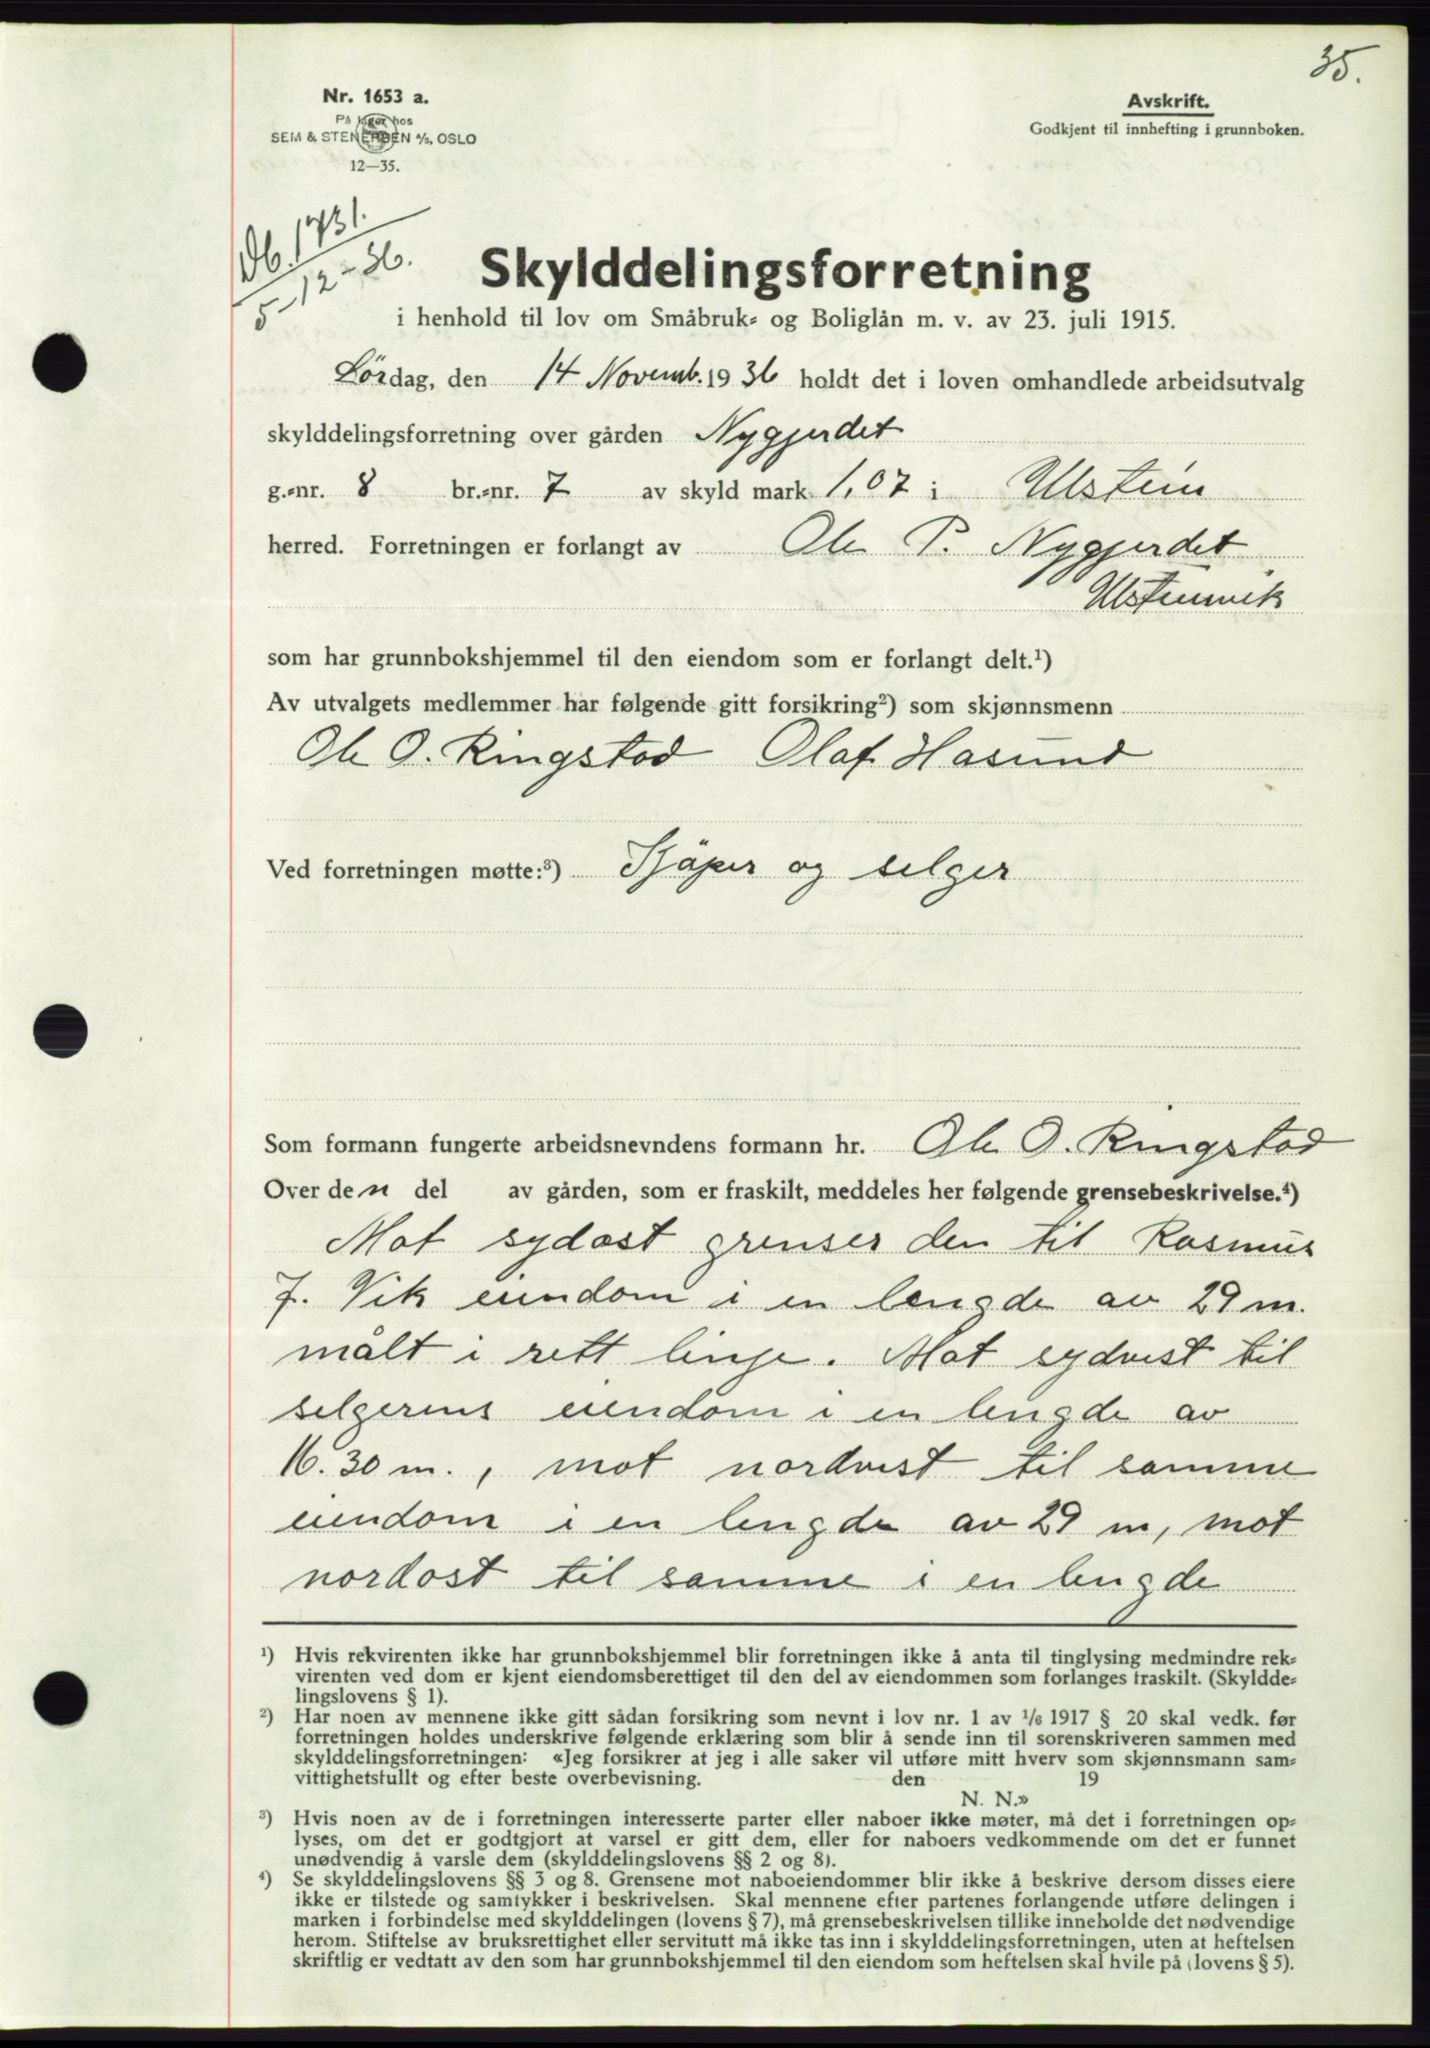 35.
Nr. 1653 a.
På lager hos
SEM & STENERSEN A/S, OSLO
12—35.
Avskrift.
Godkjent til innhefting i grunnboken.
Db. 1731.
5-12-36.
Skylddelingsforretning
i henhold til lov om Småbruk- og Boliglån m. v. av 23. juli 1915.
Lördag, den 14 Novemb. 1936 holdt det i loven omhandlede arbeidsutvalg
skylddelingsforretning over gården Nygjerdet
g.-nr. 8 br.-nr. 7 av skyld mark 1,07 i Ulstein
herred. Forretningen er forlangt av Ole P. Nygjerdet
Ulsteinvik
som har grunnbokshjemmel til den eiendom som er forlangt delt.¹)
Av utvalgets medlemmer har følgende gitt forsikring²) som skjønnsmenn
Ole O. Ringstad Olaf Hasund
Ved forretningen møtte:³) Kjöper og selger
Som formann fungerte arbeidsnevndens formann hr. Ole O. Ringstad
Over den del av gården, som er fraskilt, meddeles her følgende grensebeskrivelse.⁴)
Mot sydost grenser den til Rasmus
J. Vik eiendom i en lengde av 29 m.
målt i rett linje. Mot sydvest til
selgerens eiendom i en lengde av
16.30 m., mot nordvest til samme
eiendom i en lengde av 29 m, mot
nordost til samme i en lengde
¹) Hvis rekvirenten ikke har grunnbokshjemmel blir forretningen ikke å anta til tinglysing medmindre rek-
virenten ved dom er kjent eiendomsberettiget til den del av eiendommen som forlanges fraskilt. (Skyldde-
lingslovens § 1).
²) Har noen av mennene ikke gitt sådan forsikring som nevnt i lov nr. 1 av 1/6 1917 § 20 skal vedk. før
forretningen holdes underskrive følgende erklæring som blir å sende inn til sorenskriveren sammen med
skylddelingsforretningen: «Jeg forsikrer at jeg i alle saker vil utføre mitt hverv som skjønnsmann sam-
vittighetsfullt og efter beste overbevisning. den 19
N. N.»
³) Hvis noen av de i forretningen interesserte parter eller naboer ikke møter, må det i forretningen op-
lyses, om det er godtgjort at varsel er gitt dem, eller for naboers vedkommende om det er funnet
unødvendig å varsle dem (skylddelingslovens §§ 2 og 8).
⁴) Se skylddelingslovens §§ 3 og 8. Grensene mot naboeiendommer blir ikke å beskrive dersom disses eiere
ikke er tilstede og samtykker i beskrivelsen. Skal mennene efter partenes forlangende utføre delingen i
marken i forbindelse med skylddelingen (lovens § 7), må grensebeskrivelsen tillike inneholde det nødvendige
herom. Stiftelse av bruksrettighet eller servitutt må ikke tas inn i skylddelingsforretningen, uten at heftelsen
skriftlig er vedtatt av den som har grunnbokshjemmel til den eiendom som heftelsen skal hvile på (lovens § 5).